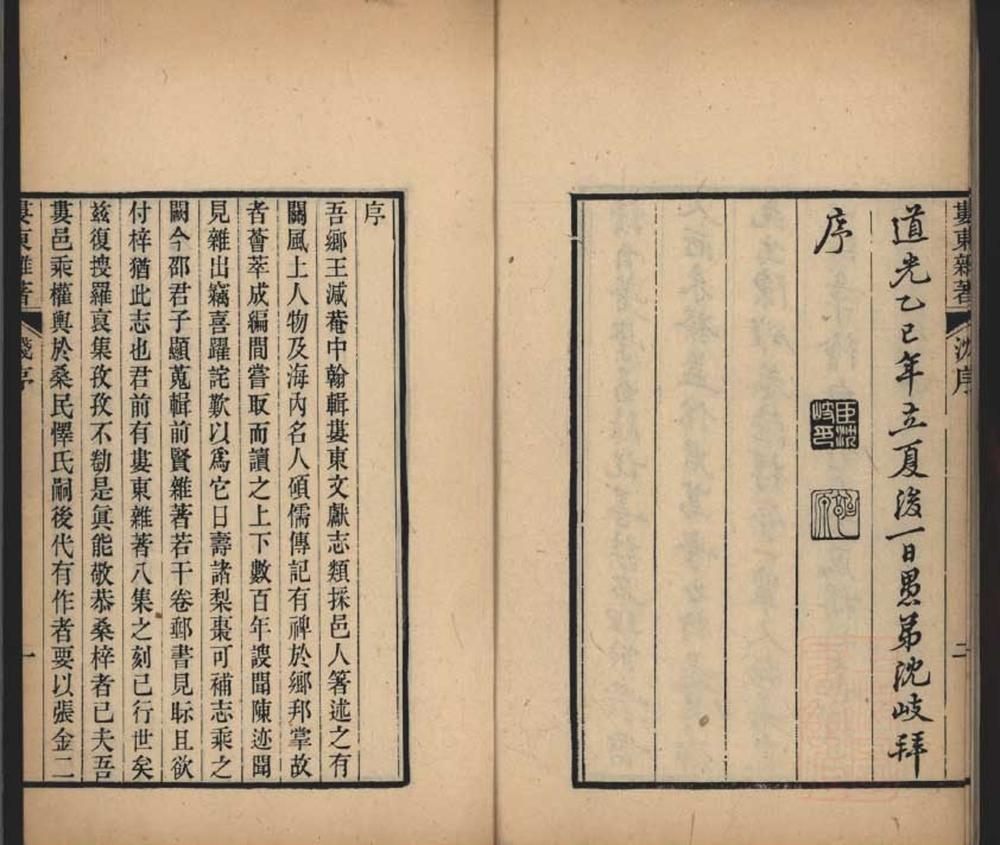 婁東雜著
沈序
二
道光乙巳年立夏後一日愚弟沈岐拜
序
臣沈岐印
序
吾鄉王減菴中翰輯婁東文獻志類採邑人箸述之有
關風土人物及海內名人碩儒傳記有裨於鄉邦掌故
者薈萃成編間嘗取而讀之上下數百年謏聞陳迹聞
見雜出竊喜躍詫歎以爲它日壽諸梨棗可補志乘之
闕今邵君子顯蒐輯前賢雜著若干卷郵書見眎且欲
付梓猶此志也君前有婁東雜著八集之刻已行世矣
茲復搜羅裒集孜孜不勌是眞能敬恭桑梓者已夫吾
婁邑乘權輿於桑民懌氏嗣後代有作者要以張金二
婁東雜著
錢序
一